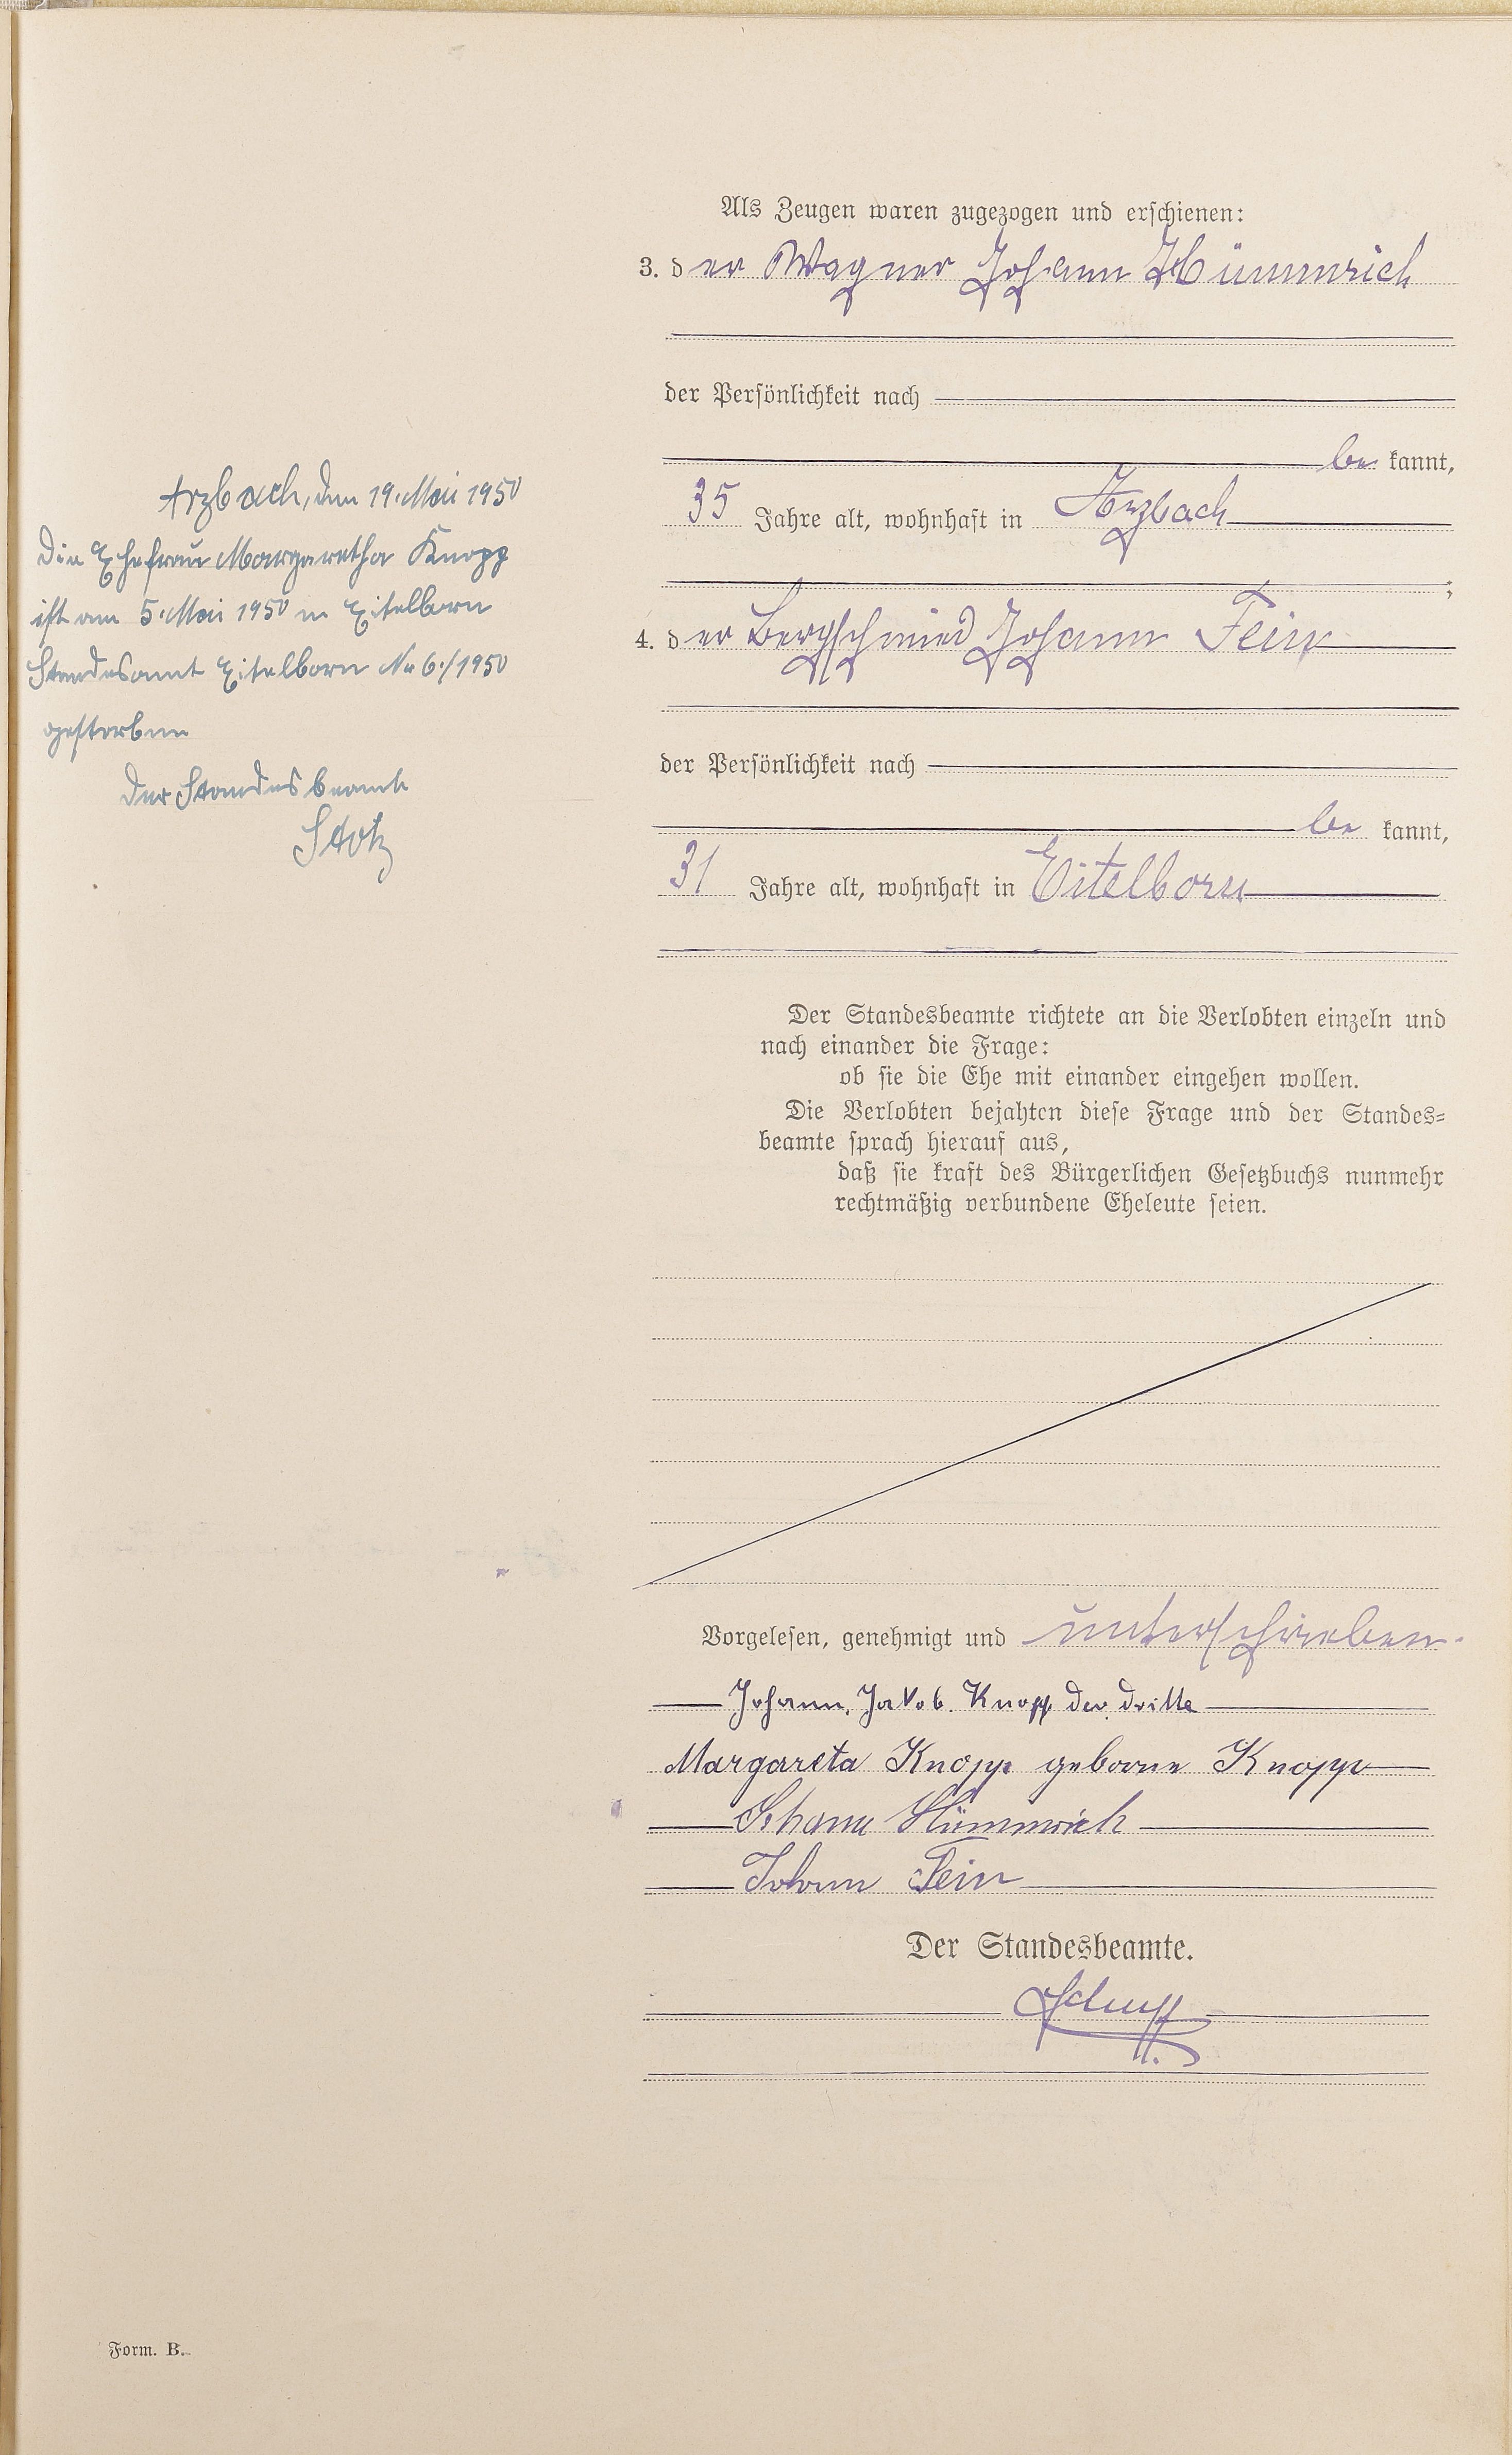 Als Zeugen waren zugezogen und erschienen:
3. der Wagner Johann Hümmrich
der Persönlichkeit nach
be kannt,
35 Jahre alt, wohnhaft in Arzbach
;
4. der Bergschmied Johann Fein
der Persönlichkeit nach
be kannt,
31 Jahre alt, wohnhaft in Eitelborn
Der Standesbeamte richtete an die Verlobten einzeln und
nach einander die Frage:
ob sie die Ehe mit einander eingehen wollen.
Die Verlobten bejahten diese Frage und der Standes-
beamte sprach hierauf aus,
daß sie kraft des Bürgerlichen Gesetzbuchs nunmehr
rechtmäßig verbundene Eheleute seien.
Vorgelesen, genehmigt und unterschrieben.
Johann Jakob Knopp der dritte
Margareta Knopp geborne Knopp
Johann Hümmrich
Johann Fein
Der Standesbeamte.
Arzbach, den 19. Mai 1950
Die Ehefrau Margaretha Knopp
ist am 5. Mai 1950 in Eitelborn
Standesamt Eitelborn Nr 6./1950
gestorben
Der Standesbeamte
Stotz
Form. B.